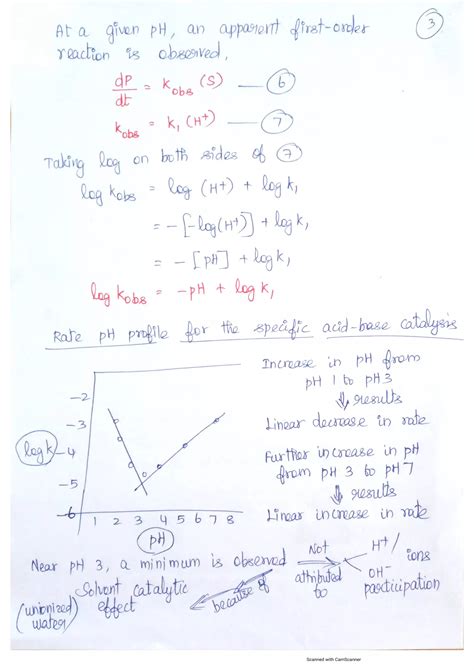 3
At a given pH, an apparent first-order
reaction is observed,
dP/dt = k_obs (S) — 6
k_obs = k₁ (H⁺) — 7
Taking log on both sides of 7
log k_obs = log (H⁺) + log k₁
= -[-log(H⁺)] + log k₁
= -[pH] + log k₁
log k_obs = -pH + log k₁
Rate pH profile for the specific acid-base catalysis
Increase in pH from
pH 1 to pH 3
⇓ results
Linear decrease in rate
Further increase in pH
from pH 3 to pH 7
⇓ results
Linear increase in rate
-2
-3
log k
-4
-5
-6
1 2 3 4 5 6 7 8
pH
Near pH 3, a minimum is observed
Not
attributed
to
H⁺ /
OH⁻
ions
participation
because of
Solvent catalytic
effect
(unionized
water)
Scanned with CamScanner